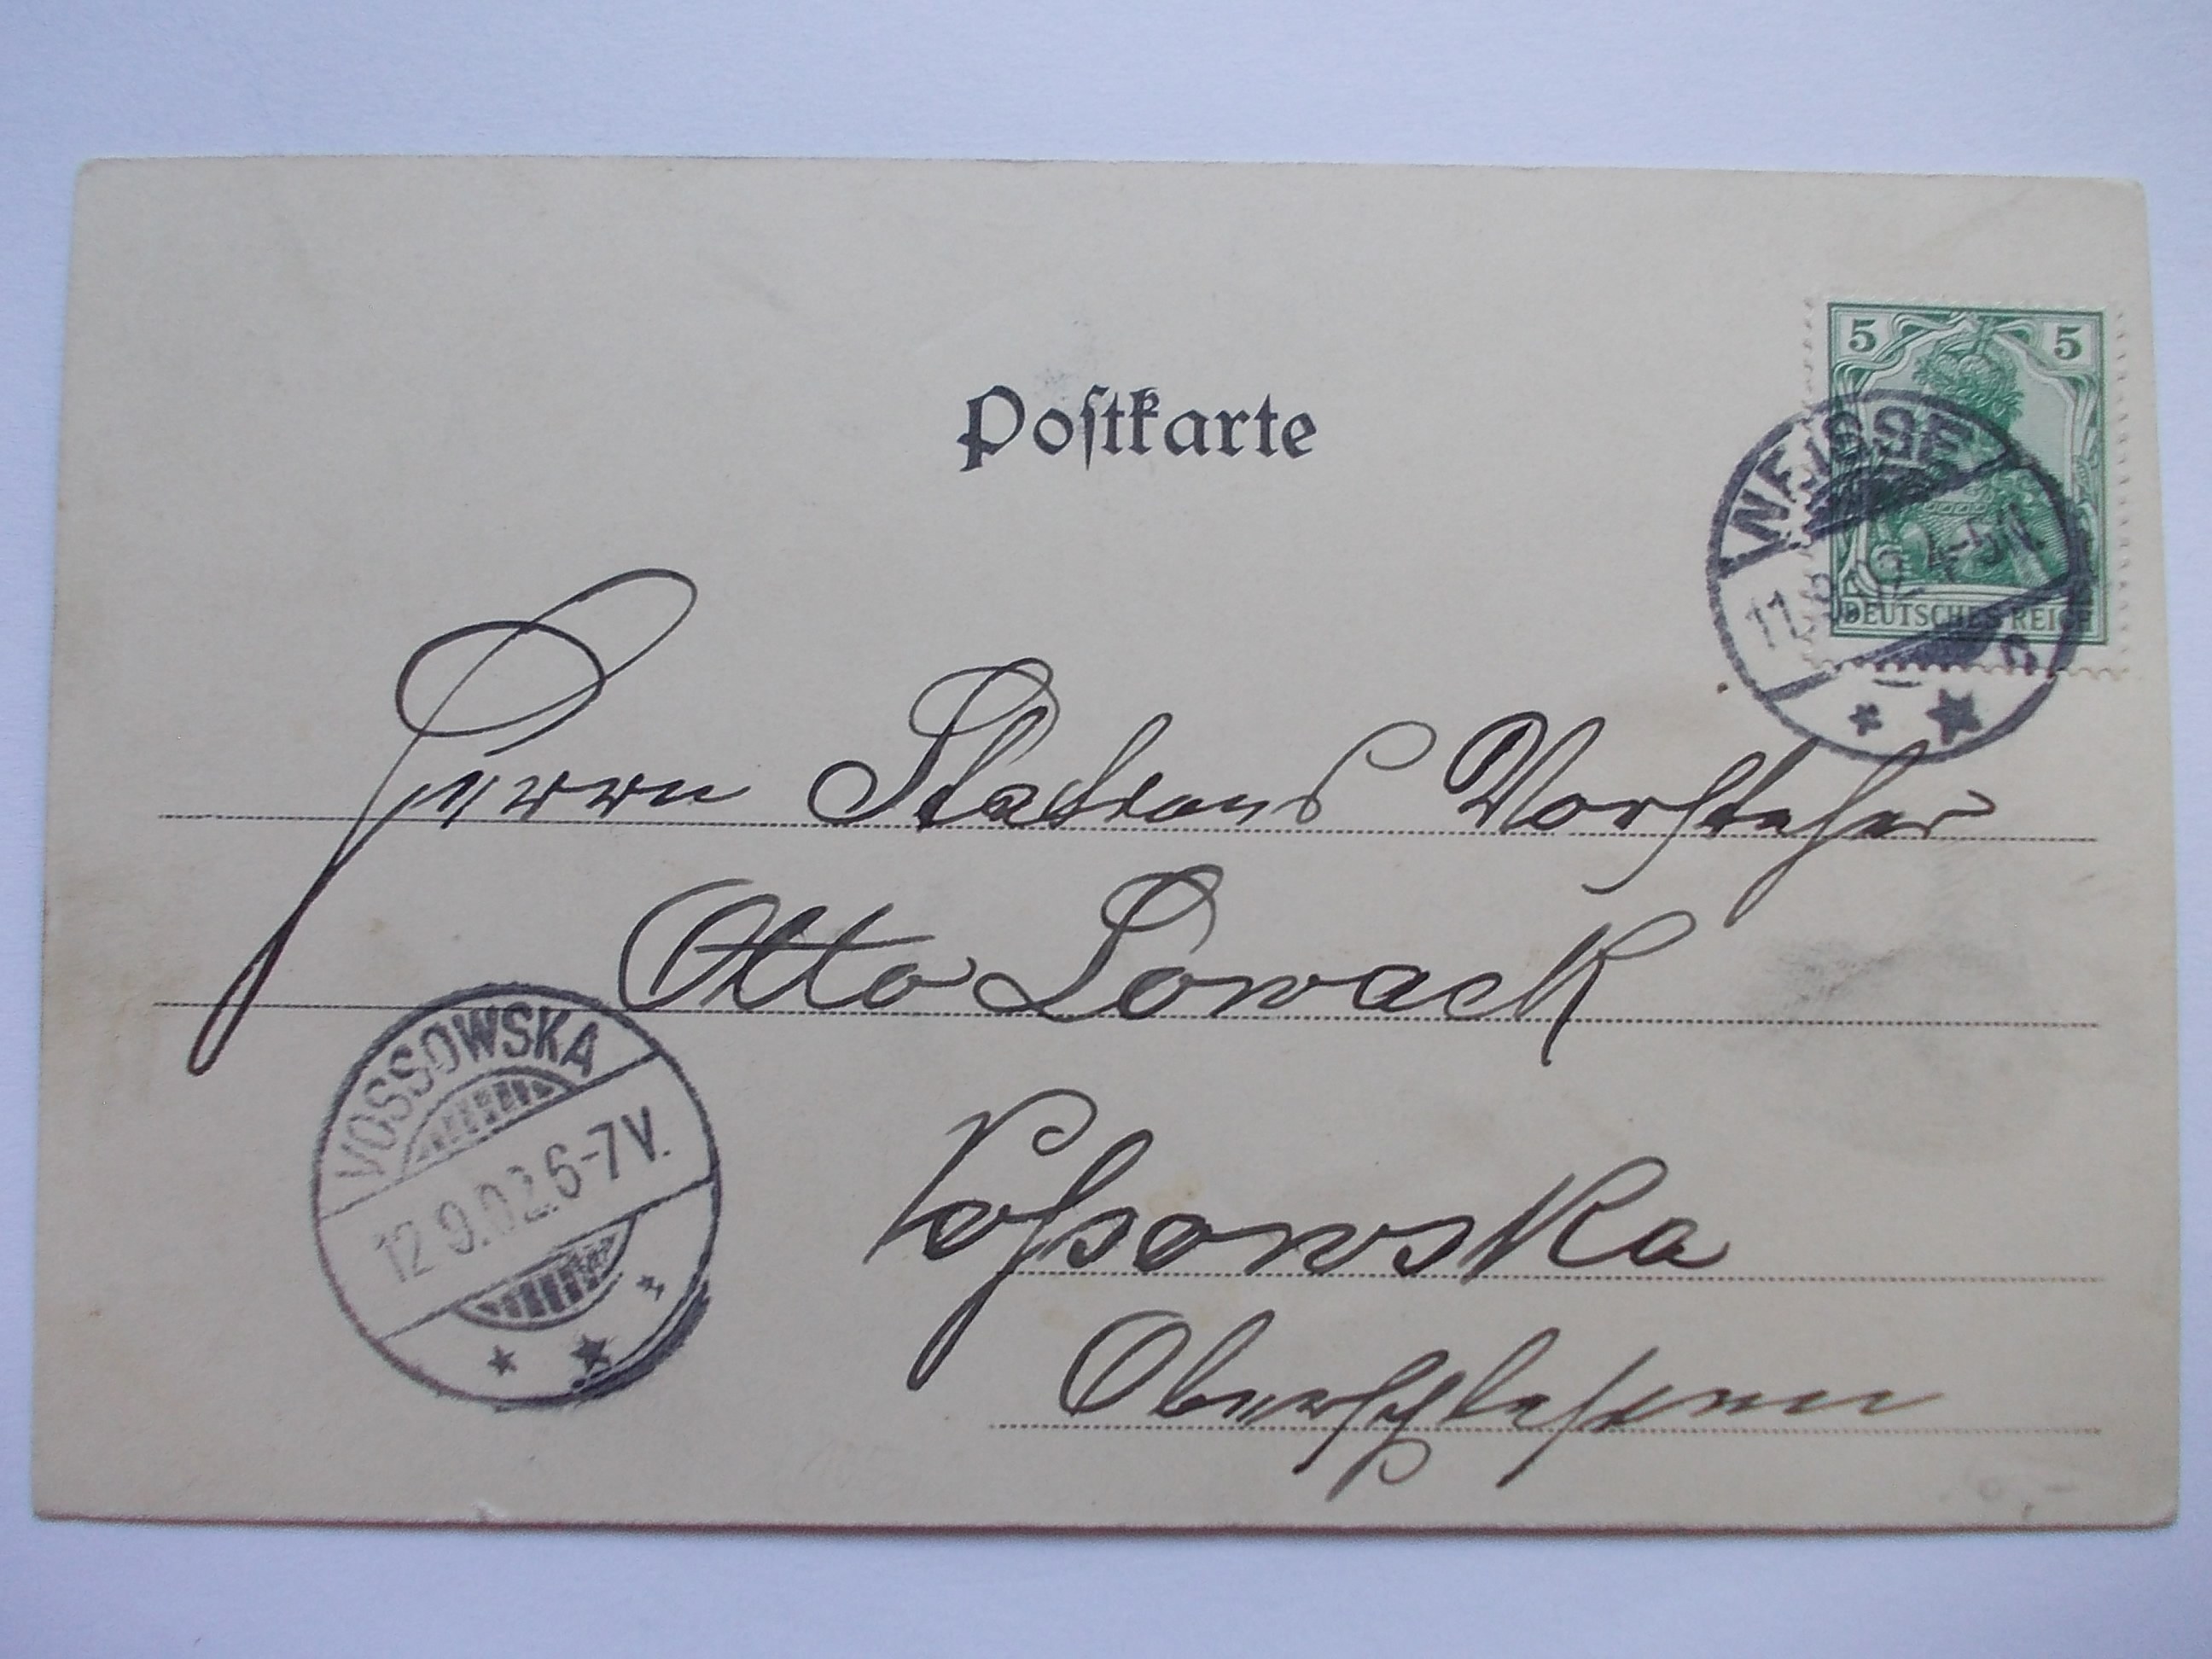 5 5
Postkarte
NEISSE
11.9.02 4-5N.
DEUTSCHES REICH
Herrn Stations Vorsteher
Otto Lowack
VOSSOWSKA
12.9.02.6-7V.
Vossowska
Oberschlesien